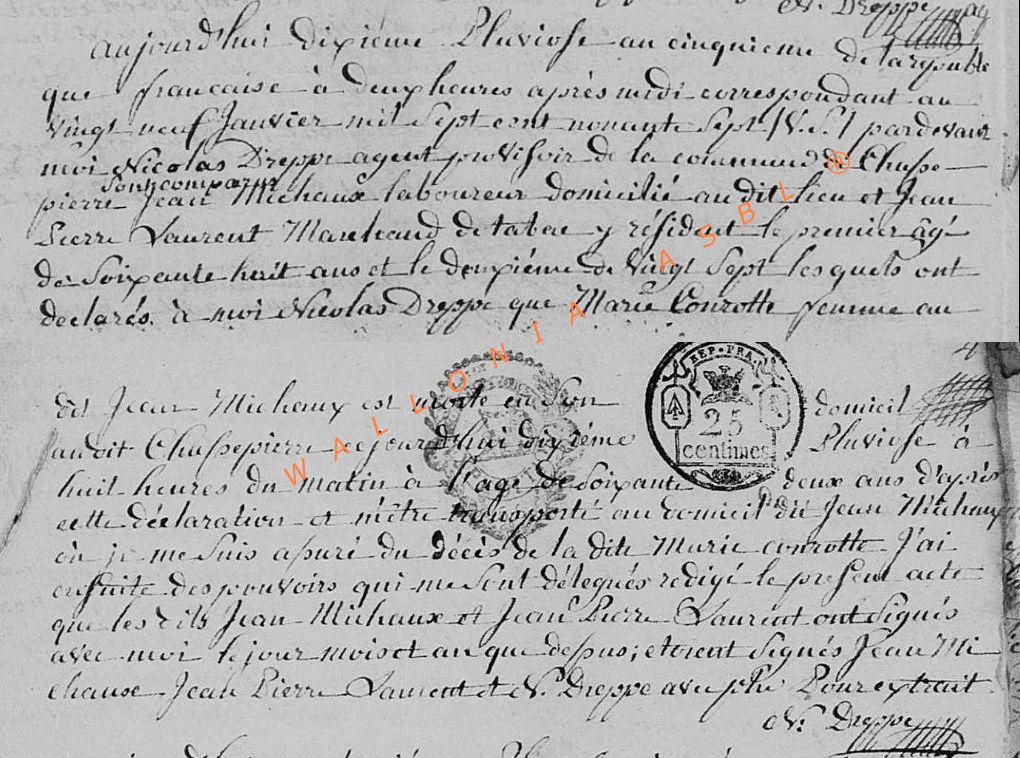 N. Dreppe
aujourd'hui dixiéme Pluviose au cinquieme de la republi
que francaise à deux heures après midi correspondant au
vingt neuf Janvier mil Sept cent nonante Sept (V. S.) pardevant
moi Nicolas Dreppe agent provisoir de la commune de Chasse
sont comparus
pierre Jean Michaux laboureur domicilié au dit lieu et Jean
Pierre Laurent Marchand de tabac y résident le premier agé
de Soixante huit ans et le deuxiéme de Vingt Sept lesquels ont
declarés à moi Nicolas Dreppe que Marie Conrotte femme au
REP. FRA.
25
centimes
dit Jean Michaux est morte en son domicil
audit Chassepierre cejourd'hui dixiéme Pluviose à
huit heures du matin à l'age de Soixante deux ans d'après
cette déclaration et m'être transporté au domicil du dit Jean Michaux
où je me suis assuré du décès de la dite Marie conrotte J'ai
ensuite des pouvoirs qui me sont délegués redigé le present acte
que les dits Jean Michaux et Jean Pierre Laurent ont signés
avec moi le jour mois et an que dessus; etoient signés Jean Mi
chause Jean Pierre Laurent et N. Dreppe avec phe Pour extrait
N. Dreppe
WALLONIA ASBL ®